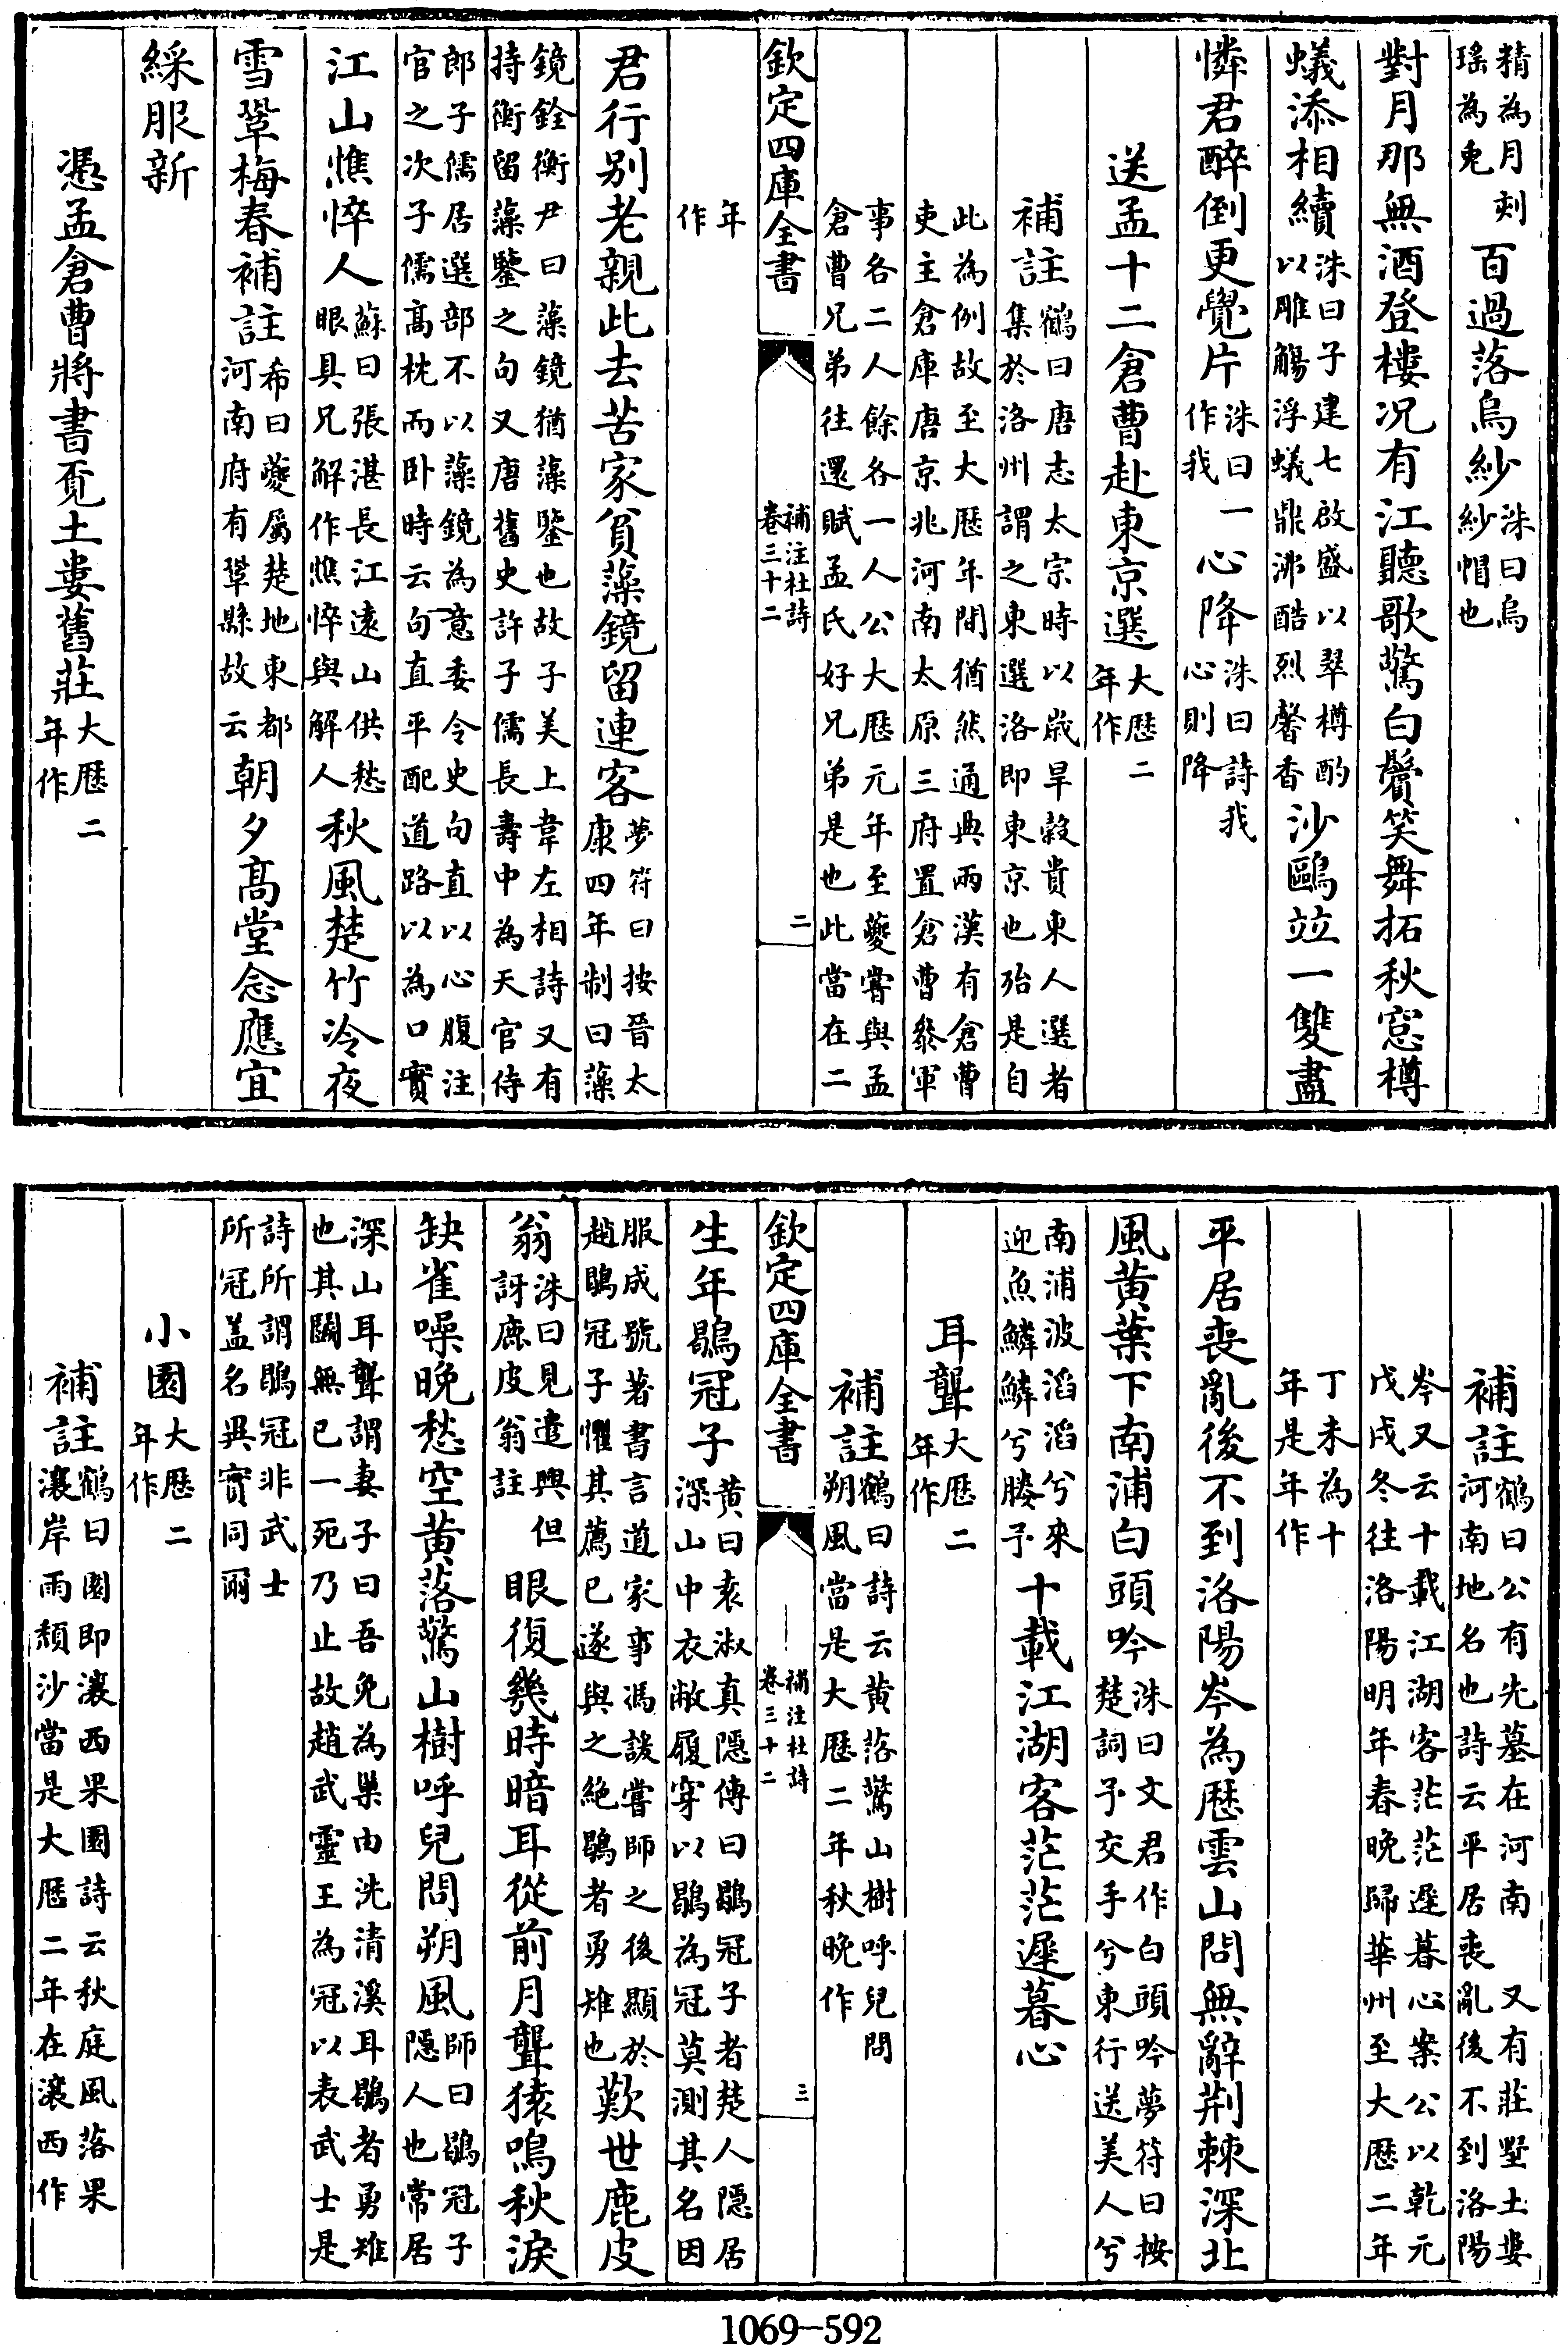 精為月剡瑶為兎百過落烏紗洙曰烏紗帽也
對月那無酒登樓况有江聽歌驚白鬢笑舞拓秋窓樽
蟻添相續洙曰子建七啟盛以翠樽酌以雕觴浮蟻鼎沸酷烈馨香沙鷗竝一雙盡
憐君醉倒更覺片洙曰一作我心降洙曰詩我心則降
送孟十二倉曹赴東京選大厯二年作
補註鶴曰唐志太宗時以歲旱穀貴東人選者集於洛州謂之東選洛即東京也殆是自
此為例故至大厯年間猶然通典兩漢有倉曹吏主倉庫唐京兆河南太原三府置倉曹叅軍
事各二人餘各一人公大厯元年至夔甞與孟倉曹兄弟往還賦孟氏好兄弟是也此當在二
欽定四庫全書 補注杜詩卷三十二 二
年作
君行别老親此去苦家貧藻鏡留連客夢符曰按晉太康四年制曰藻
鏡銓衡尹曰藻鏡猶藻鑒也故子美上韋左相詩又有持衡留藻鑒之句又唐舊史許子儒長壽中為天官侍
郎子儒居選部不以藻鏡為意委令史句直以心腹注官之次子儒高枕而卧時云句直平配道路以為口實
江山憔悴人蘇曰張湛長江遠山供愁眼具兄解作憔悴與解人秋風楚竹冷夜
雪鞏梅春補註希曰夔屬楚地東都河南府有鞏縣故云朝夕高堂念應宜
綵服新
憑孟倉曹將書覓土婁舊莊大厯二年作
補註鶴曰公有先墓在河南又有莊墅土婁河南地名也詩云平居喪亂後不到洛陽
岑又云十載江湖客茫茫遲暮心案公以乾元戊戌冬往洛陽明年春晚歸華州至大厯二年
丁未為十年是年作
平居喪亂後不到洛陽岑為厯雲山問無辭荆棘深北
風黄葉下南浦白頭吟洙曰文君作白頭吟夢符曰按楚詞予交手兮東行送美人兮
南浦波滔滔兮來迎魚鱗鱗兮媵予十載江湖客茫茫遲暮心
耳聾大厯二年作
補註鶴曰詩云黄落驚山樹呼兒問朔風當是大厯二年秋晚作
欽定四庫全書 補注杜詩卷三十二 三
生年鶡冠子黄曰袁淑真隠傳曰鶡冠子者楚人隠居深山中衣敝履穿以鶡為冠莫測其名因
服成號著書言道家事馮諼嘗師之後顯於趙鶡冠子懼其薦已遂與之絶鶡者勇雉也歎世鹿皮
翁洙曰見遣興但訝鹿皮翁註眼復幾時暗耳從前月聾猿鳴秋淚
缺雀噪晚愁空黄落驚山樹呼兒問朔風師曰鶡冠子隠人也常居
深山耳聾謂妻子曰吾免為巢由洗清溪耳鶡者勇雉也其鬭無已一死乃止故趙武靈王為冠以表武士是
詩所謂鶡冠非武士所冠盖名異實同爾
小園大厯二年作
補註鶴曰園即瀼西果園詩云秋庭風落果瀼岸雨頽沙當是大厯二年在瀼西作
1069-592